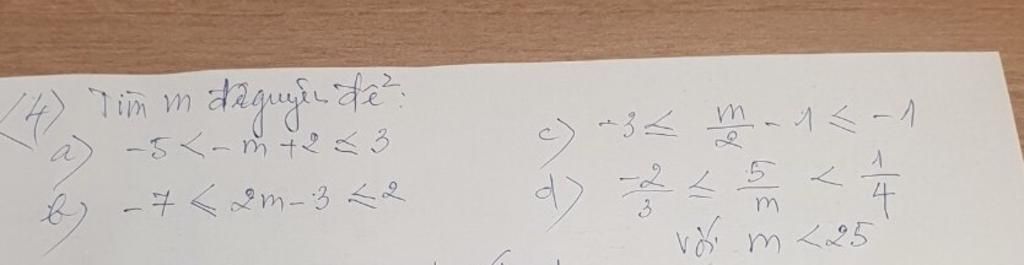 (4) Tìm m để nguyên để:
a) -5 < -m + 2 ≤ 3
b) -7 ≤ 2m - 3 ≤ 2
c) -3 ≤ m/2 - 1 ≤ -1
d) -2/3 ≤ 5/m < 1/4
với m < 25